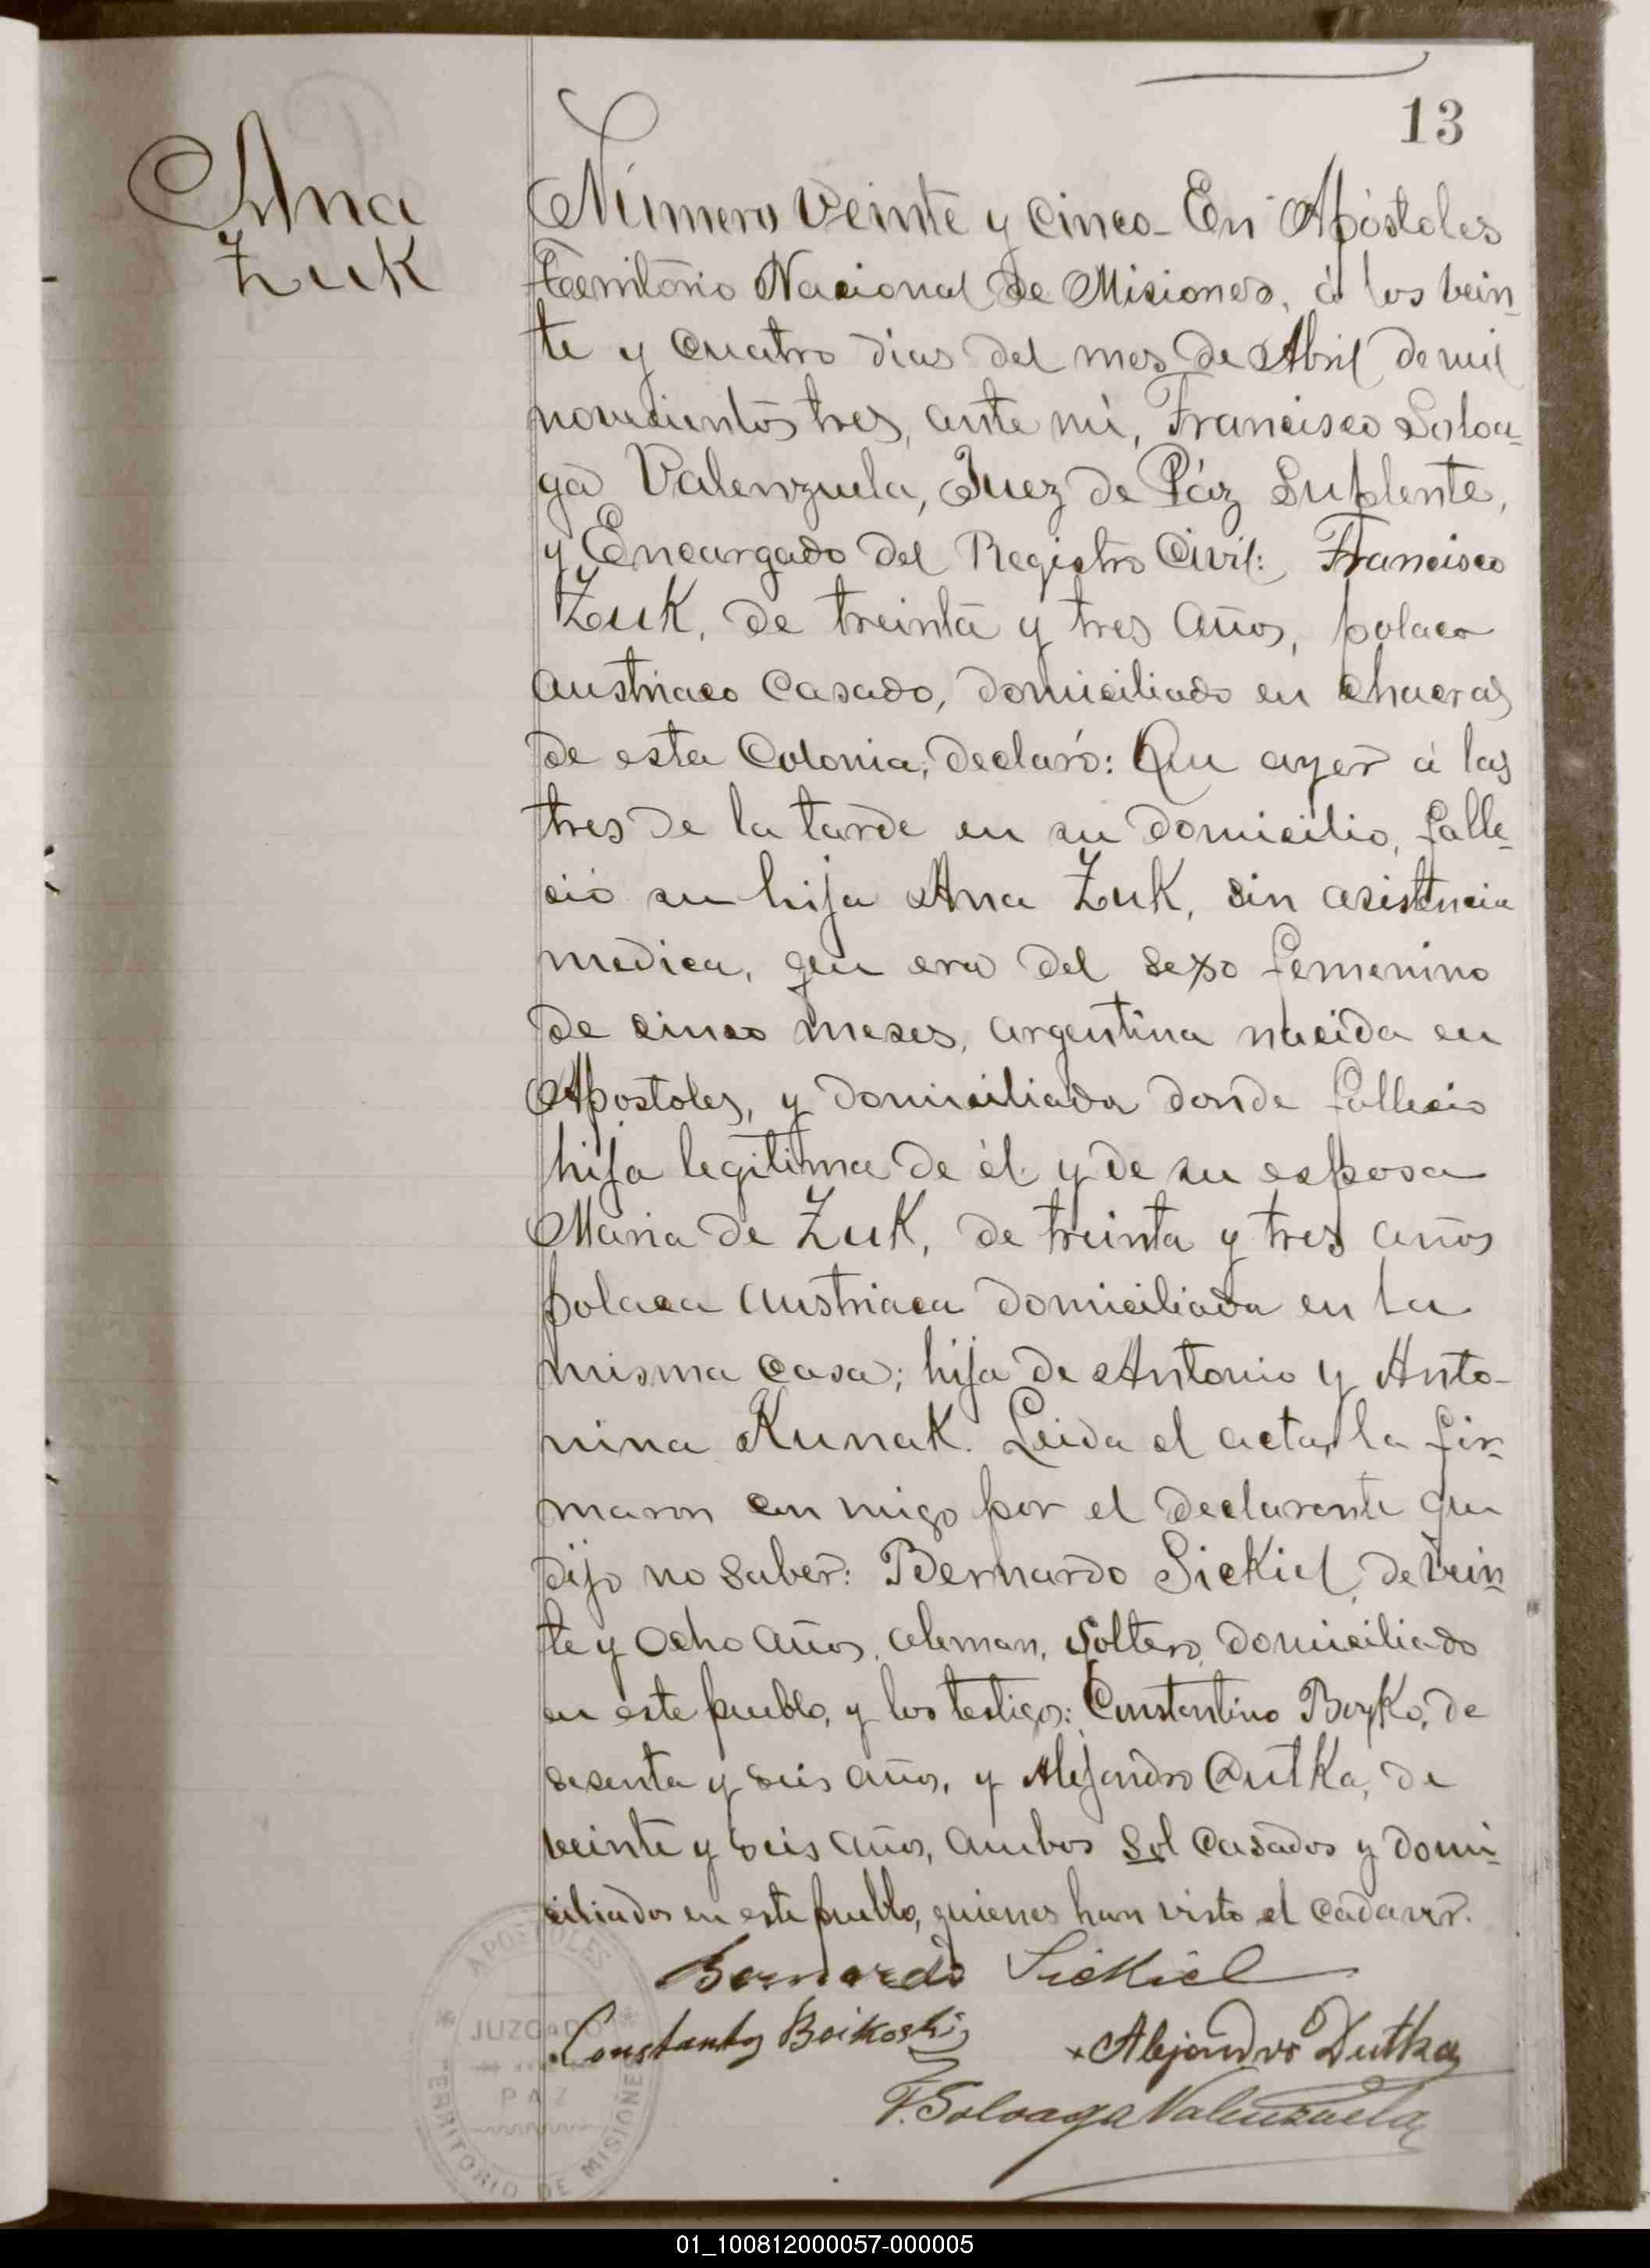 13
Ana
Zuk
Número Veinte y cinco_ En Apóstoles
Territorio Nacional de Misiones, á los vein-
te y cuatro dias del mes de Abril de mil
novecientos tres, ante mi, Francisco Soloa-
ga Valenzuela, Juez de Páz Suplente,
y Encargado del Registro Civil: Francisco
Zuk, de treinta y tres años, polaco
austriaco casado, domiciliado en chacras
de esta Colonia, declaró: Que ayer á las
tres de la tarde en su domicilio, falle-
ció su hija Ana Zuk, sin asistencia
medica, que era del sexo femenino
de cinco meses, argentina nacida en
Apostoles, y domiciliada donde fallecio
hija legitima de él y de su esposa
Maria de Zuk, de treinta y tres años
polaca austriaca domiciliada en la
misma casa; hija de Antonio y Anto-
nina Kunak. Leida el acta, la fir-
maron con migo por el declarante que
dijo no saber: Bernardo Sickiel, de vein-
te y ocho años, aleman, soltero, domiciliado
en este pueblo, y los testigos: Constantino Boyko, de
sesenta y seis años, y Alejandro Dutka, de
veinte y seis años, ambos sol casados y domi-
ciliados en este pueblo, quienes han visto el cadaver.
Bernardo Sickiel
Constanty Boikoski
x Alejandro Dutka
F. Soloaga Valenzuela
APOSTOLES
JUZGADO
PAZ
TERRITORIO DE MISIONES
01_100812000057-000005